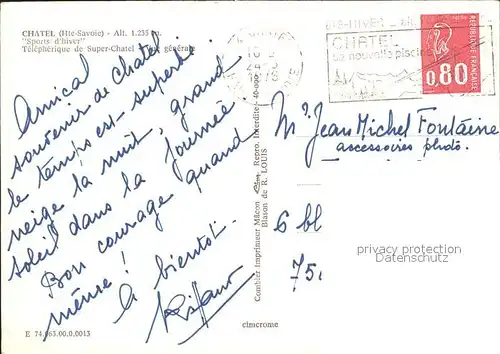 CHATEL (Hte-Savoie) - Alt. 1.235 m.
"Sports d'hiver"
Téléphérique de Super-Chatel - Vue générale
Amical
souvenir de Chatel
le temps est superbe
neige la nuit, grand
soleil dans la journée
Bon courage quand
même !
A bientôt.
E 74.063.00.0.0013
Combier Imprimeur Mâcon
Repro. Interdite
Blason de R. LOUIS
cimcrome
CHATEL
sa nouvelle piscine
REPUBLIQUE FRANCAISE
0,80
Mr Jean Michel Fontaine
accessoires photo.
6 bl
privacy protection
Datenschutz